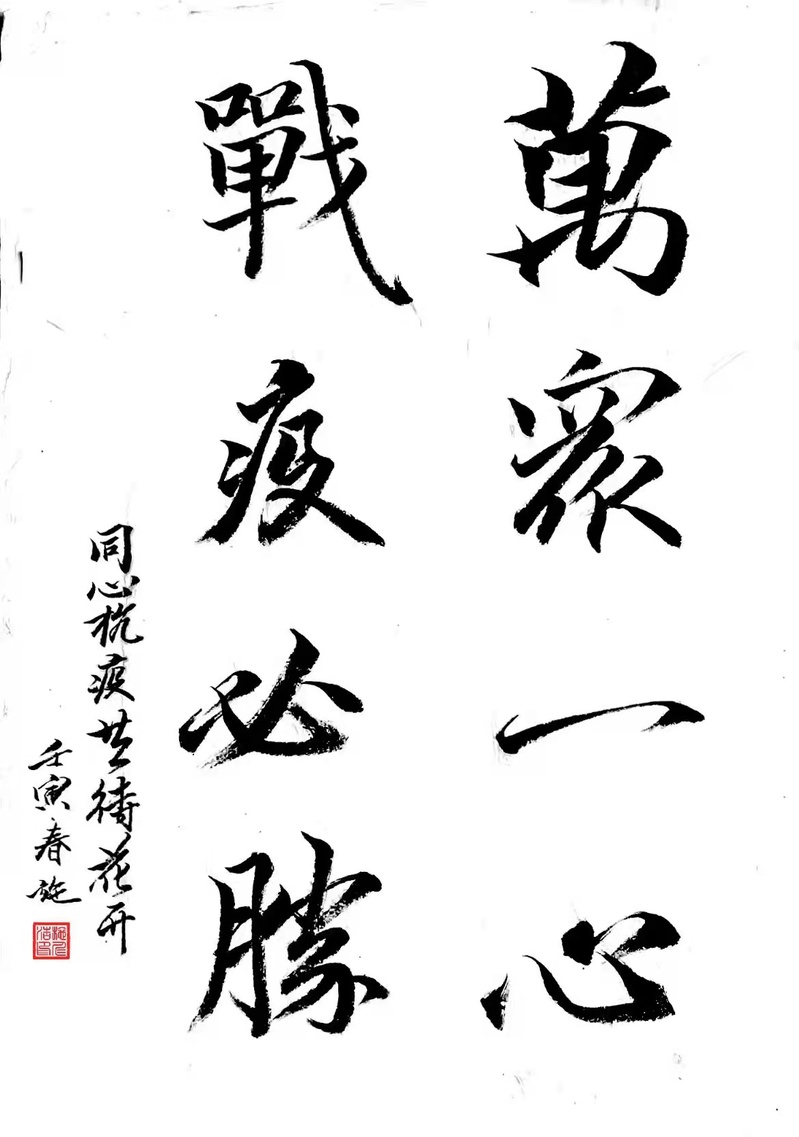 萬眾一心
戰疫必勝
同心抗疫共待花开
壬寅春施